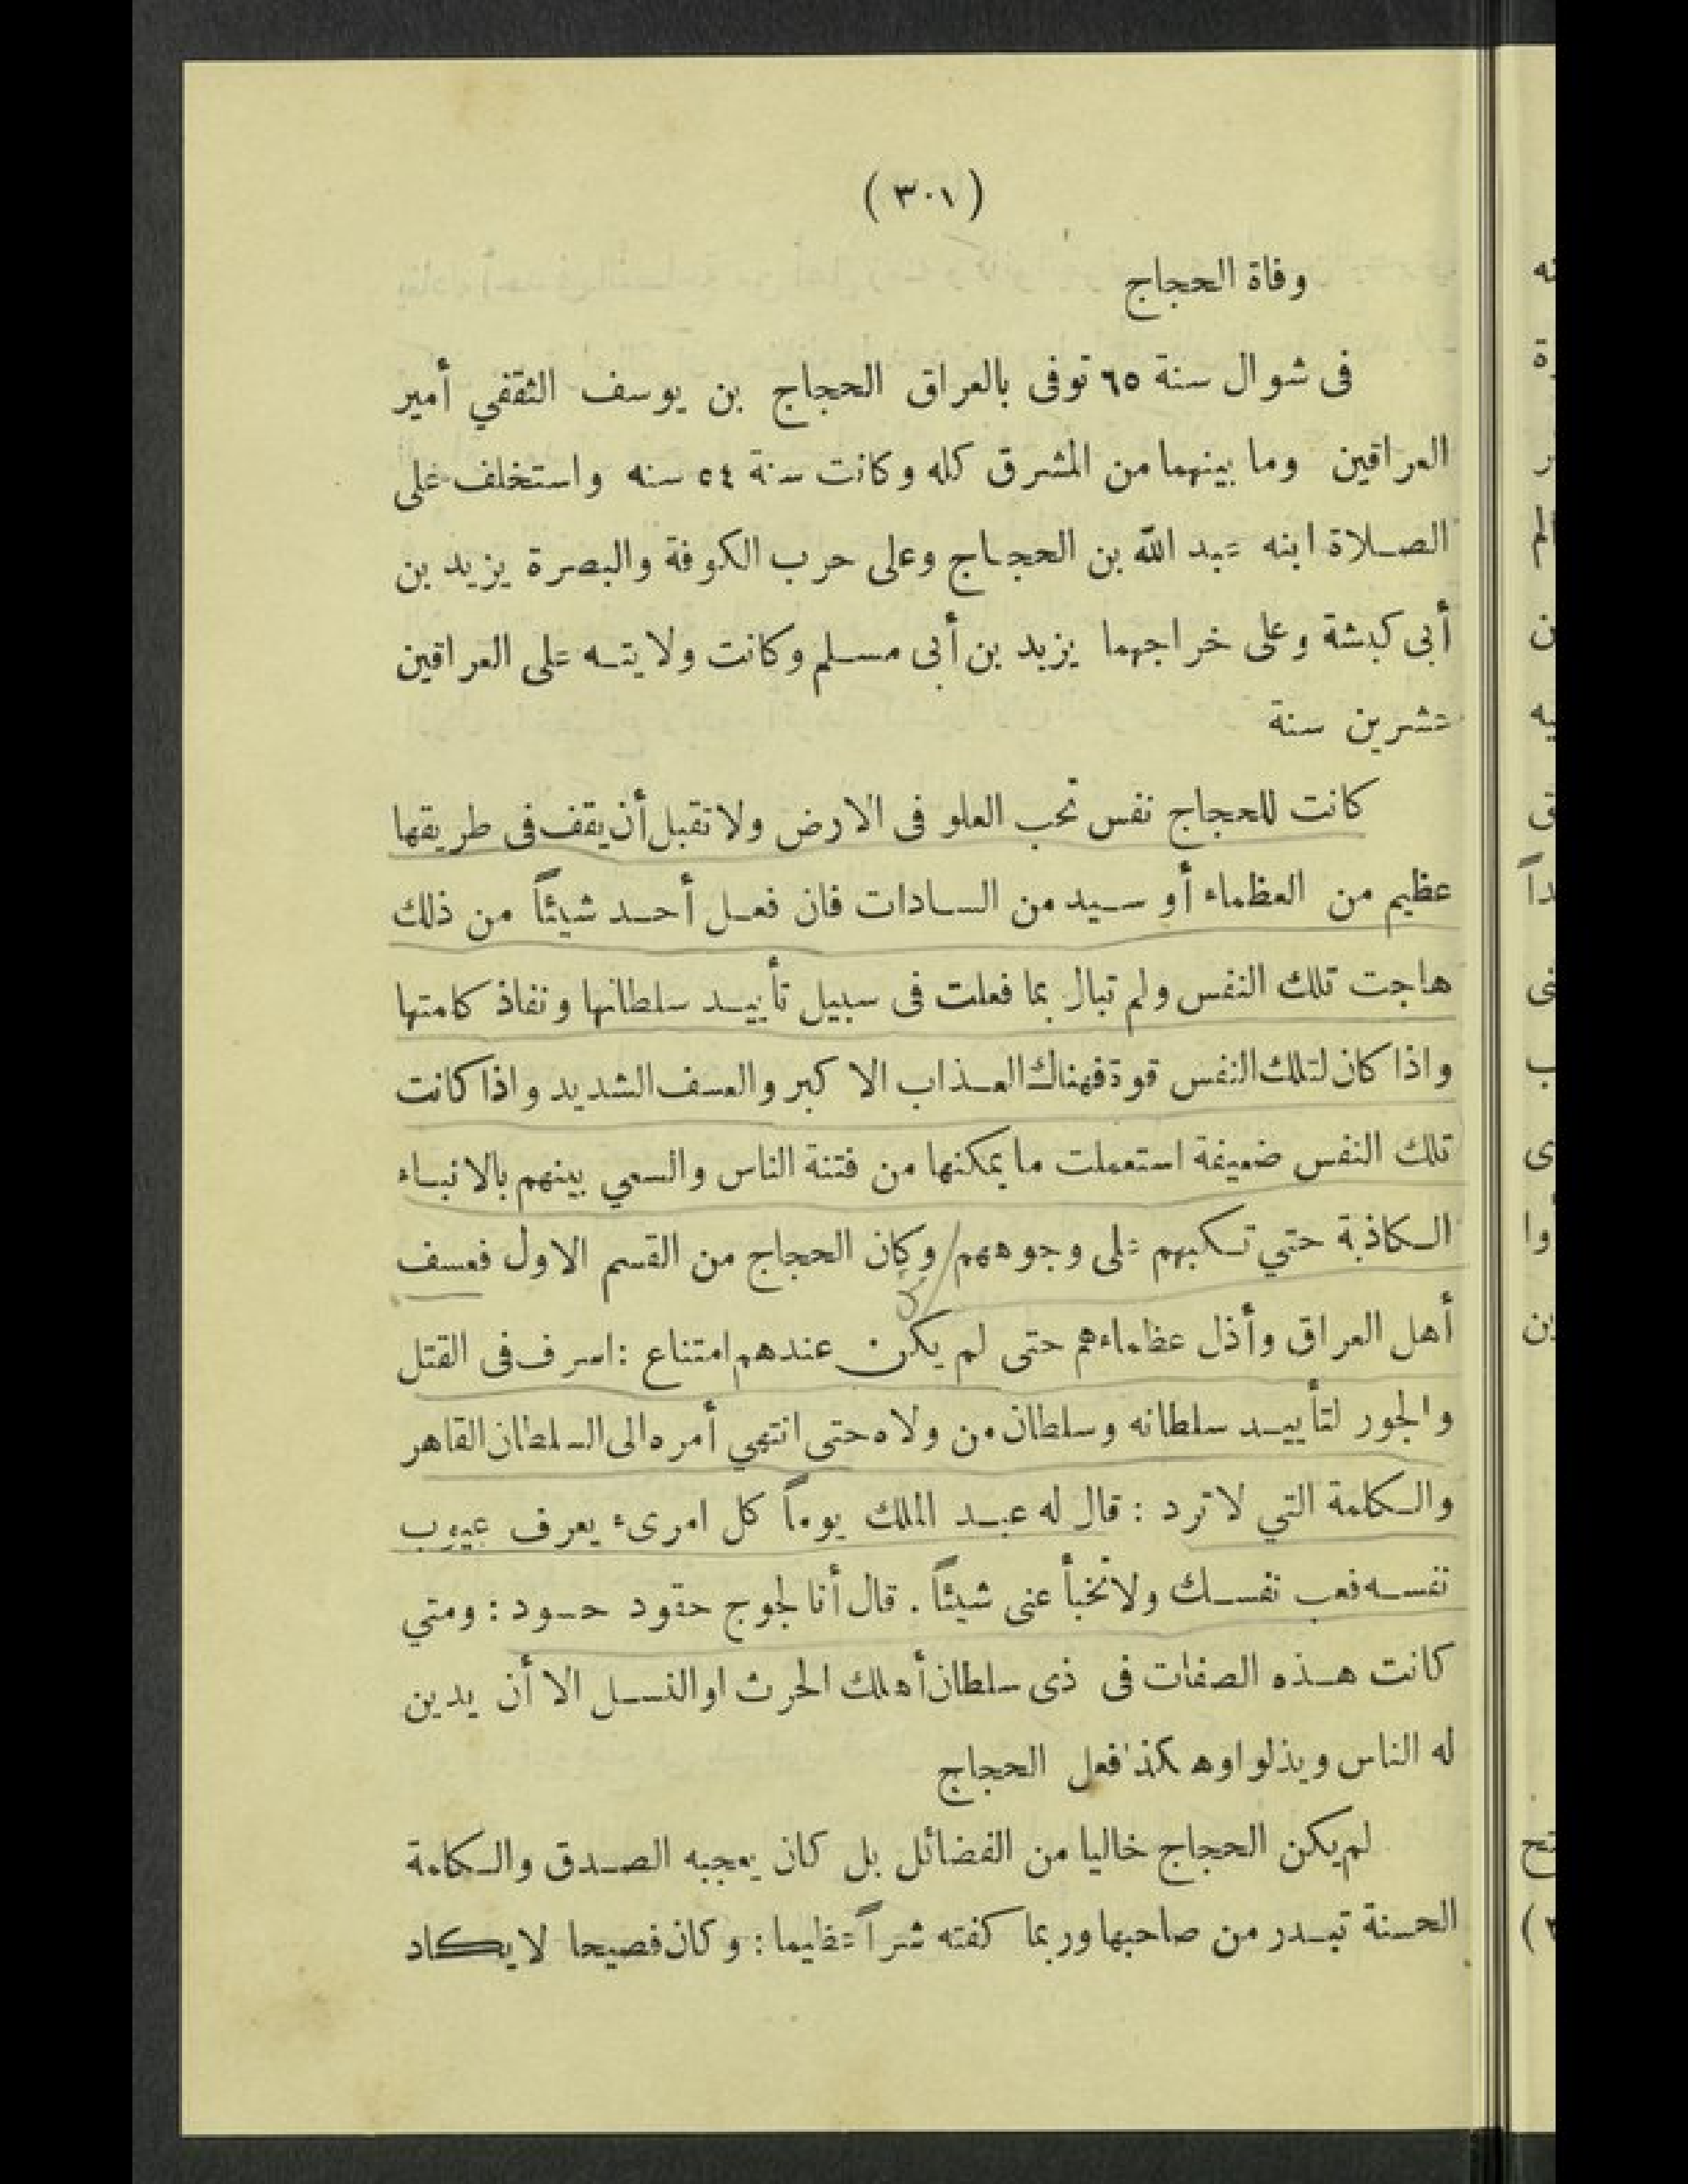 (٣٠١)
وفاة الحجاج
فى شوال سنة ٦٥ توفى بالعراق الحجاج بن يوسف الثقفي أمير
العراقين وما بينهما من المشرق كله وكانت سنة ٥٤ سنه واستخلف على
الصلاة ابنه عبد الله بن الحجاج وعلى حرب الكوفة والبصرة يزيد بن
أبى كبشة وعلى خراجهما يزيد بن أبى مسلم وكانت ولايته على العراقين
عشرين سنة
كانت للحجاج نفس تحب العلو فى الارض ولا تقبل أن يقف فى طريقها
عظيم من العظماء أو سيد من السادات فان فعل أحد شيئاً من ذلك
هاجت تلك النفس ولم تبال بما فعلت فى سبيل تأييد سلطانها ونفاذ كلمتها
واذا كان لتلك النفس قوة فهناك العذاب الاكبر والعسف الشديد واذا كانت
تلك النفس ضعيفة استعملت ما يمكنها من فتنة الناس والسعي بينهم بالانباء
الكاذبة حتي تكبهم على وجوههم وكان الحجاج من القسم الاول فعسف
أهل العراق وأذل عظماءهم حتى لم يكن عندهم امتناع : اسرف فى القتل
والجور لتأييد سلطانه وسلطان من ولاه حتى انتهي أمره الى السلطان القاهر
والكلمة التي لا ترد : قال له عبد الملك يوماً كل امرىء يعرف عيوب
نفسه فعب نفسك ولا تخبأ عنى شيئاً . قال أنا لجوج حقود حسود : ومتي
كانت هذه الصفات فى ذى سلطان أهلك الحرث او النسل الا أن يدين
له الناس ويذلوا وهكذا فعل الحجاج
لم يكن الحجاج خاليا من الفضائل بل كان يعجبه الصدق والكلمة
الحسنة تبدر من صاحبها وربما كفته شراً عظيما : وكان فصيحا لا يكاد